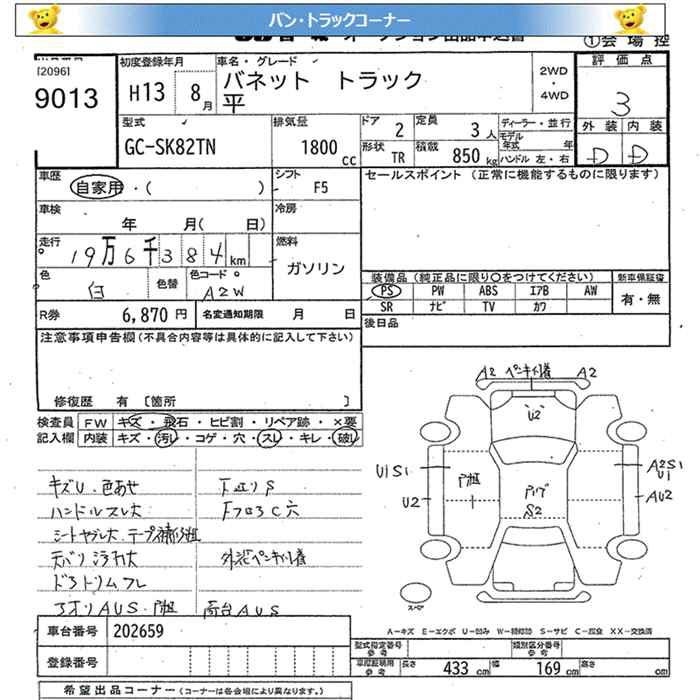 バン・トラックコーナー
①会場控
[2096]
9013
初度登録年月
H13 8月
車名・グレード
バネット トラック
平
2WD
・
4WD
評価点
3
外装 内装
D D
型式
GC-SK82TN
排気量
1800 cc
ドア 2
定員 3人
形状 TR
積載 850 kg
ディーラー・並行
モデル年式 年
ハンドル 左・右
車歴
自家用・( )
シフト
F5
セールスポイント (正常に機能するものに限ります)
車検
年 月( 日)
冷房
走行
19万6千384km
燃料
ガソリン
色
白
色替
色コード
A2W
装備品 (純正品に限り○をつけてください)
新車保証書
PS PW ABS エアB AW
SR ナビ TV カワ
有・無
R券 6,870円
名変通知期限 月 日
後日品
注意事項申告欄 (不具合内容等は具体的に記入して下さい)
修復歴 有 〔箇所 〕
検査員
記入欄
FW キズ・飛石・ヒビ割・リペア跡・×要
内装 キズ・汚レ・コゲ・穴・スレ・キレ・破レ
キズU・色あせ
ハンドルスレ大
下廻りS
FフロアC穴
外装ペンキハゲ
荷台AUS
A2 A2
U2
U1S1
U2
S2
A2S1
U1
AU2
スペア
A-キズ E-エクボ U-凹み W-補修跡 S-サビ C-腐食 XX-交換済
車台番号 202659
登録番号
型式指定番号
参考
類別区分番号
参考
車庫証明用
参考
長さ 433 cm 幅 169 cm 高さ cm
希望出品コーナー (コーナーは各会場により異なります。)